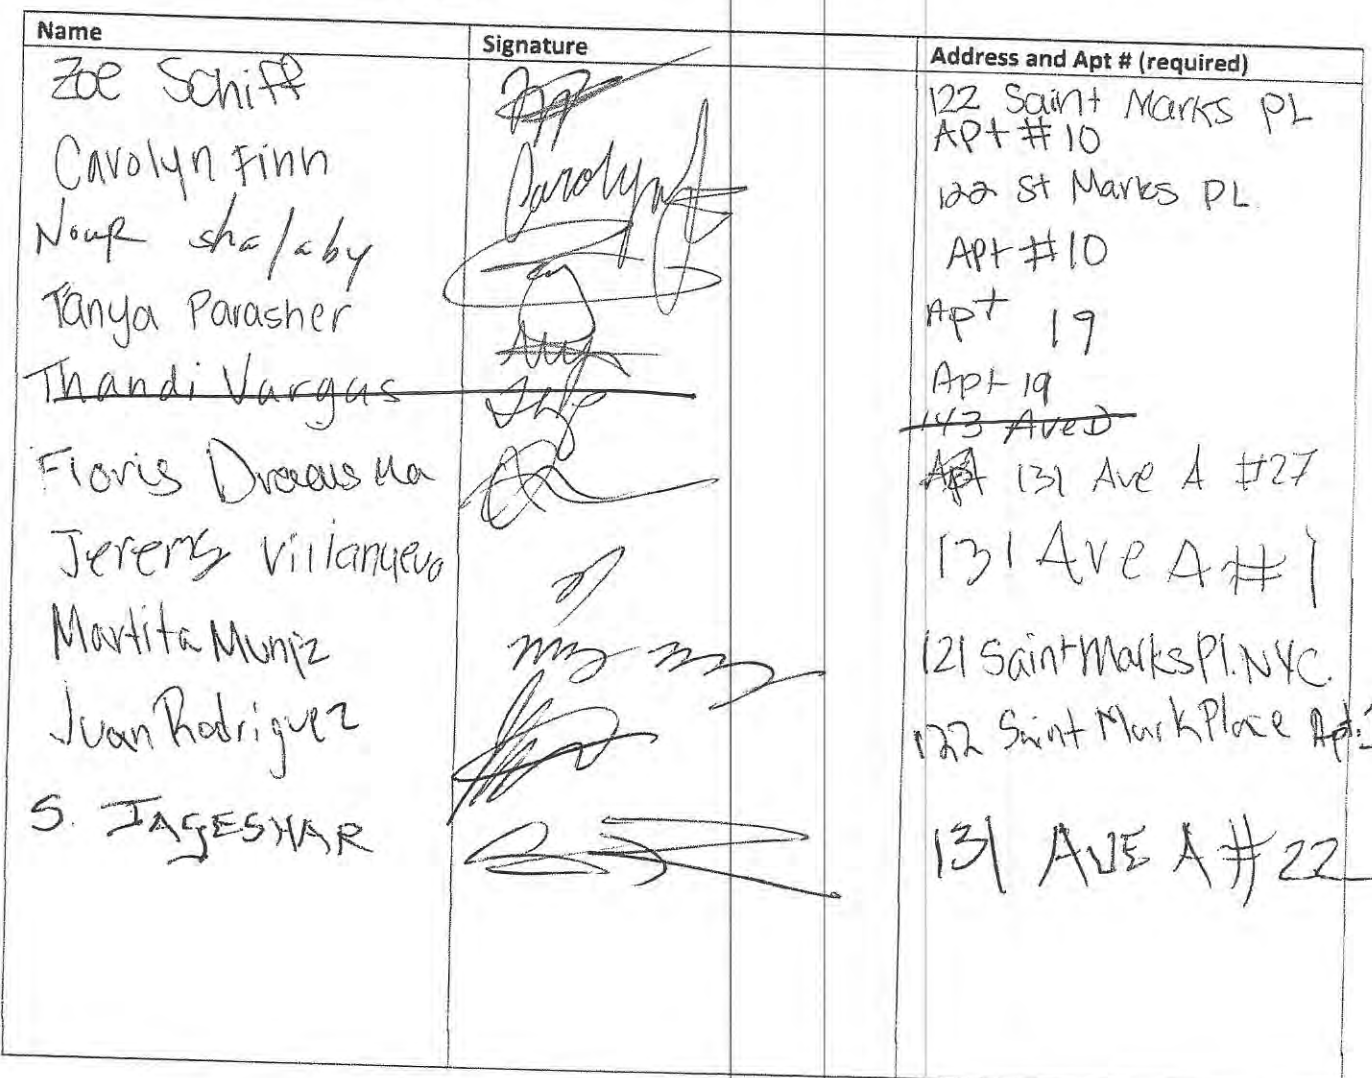 Name Signature Address and Apt # (required)
Zoe Schiff 122 Saint Marks PL
Apt #10
Carolyn Finn Carolyn 122 St Marks PL
Nour shalaby Apt #10
Tanya Parasher Apt 19
Thandi Vargas Apt 19
143 Ave D
Floris 131 Ave A #27
Jeremy Villanueva 131 Ave A #1
Martita Muniz 121 Saint Marks Pl. NYC.
Juan Rodriguez 122 Saint Mark Place Apt:
S. JAGESHAR 131 AVE A #22